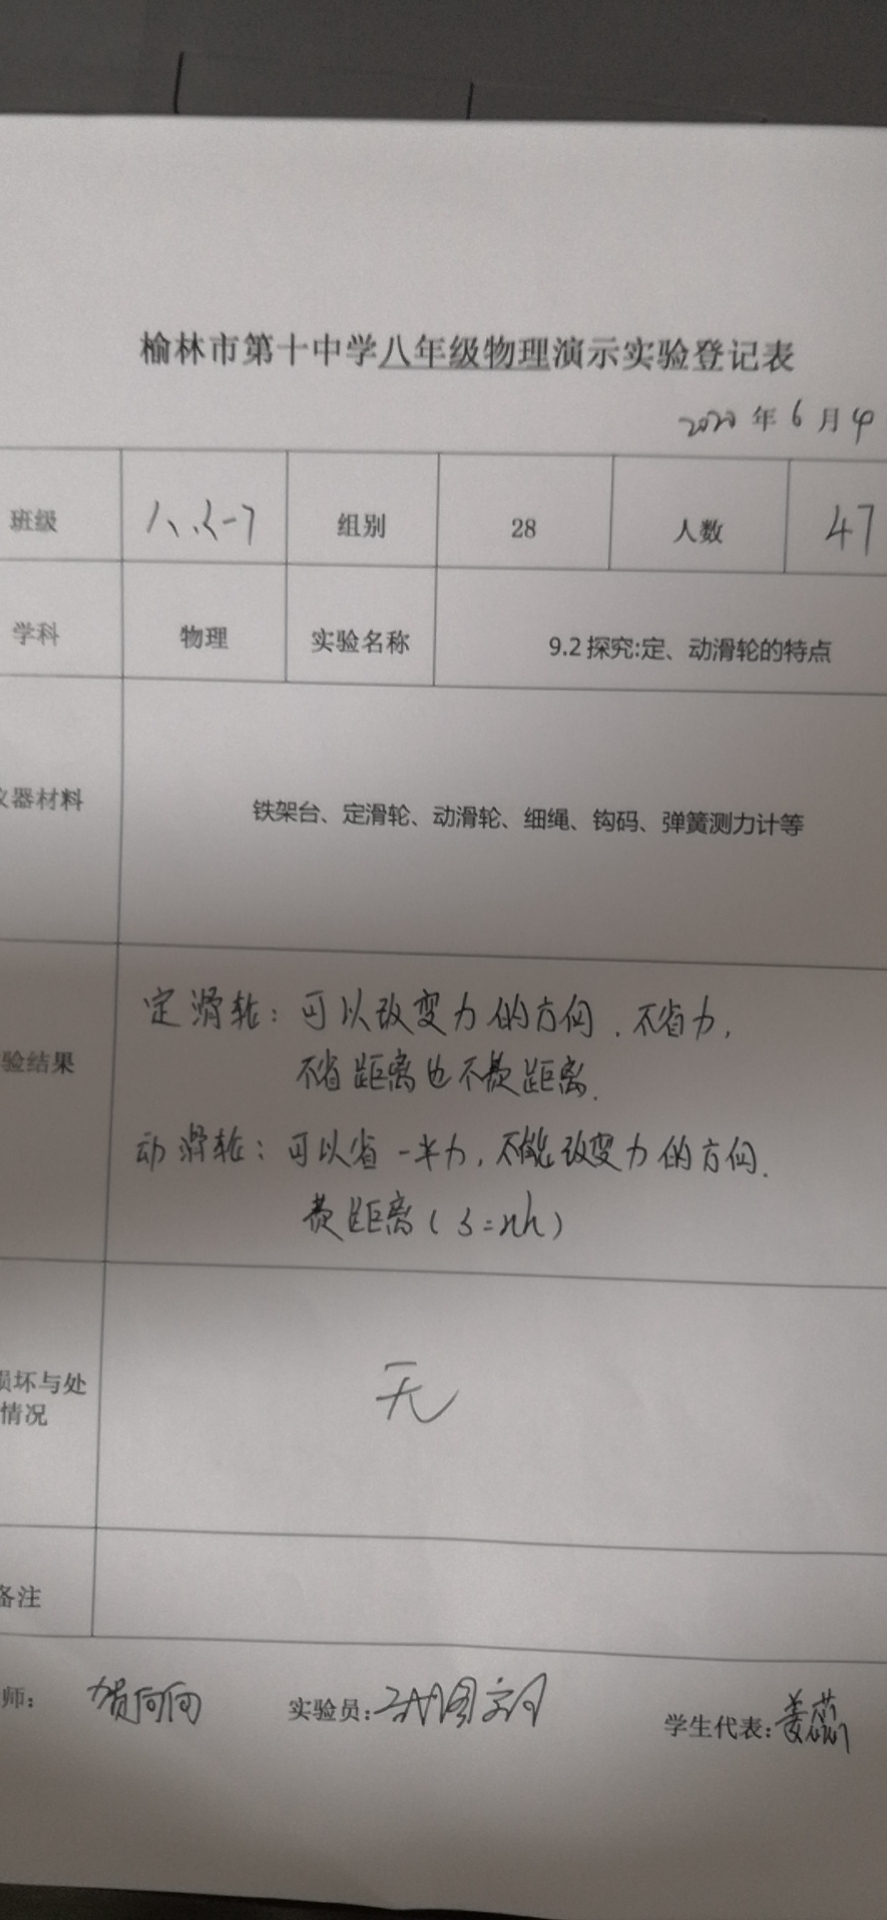 榆林市第十中学八年级物理演示实验登记表
2020年6月4
班级 组别 28 人数 47
学科 物理 实验名称 9.2探究:定、动滑轮的特点
器材料 铁架台、定滑轮、动滑轮、细绳、钩码、弹簧测力计等
定滑轮：可以改变力的方向.不省力,
验结果
不省距离也不费距离.
动滑轮：可以省一半力,不能改变力的方向.
费距离(S=nh)
损坏与处
情况
无
备注
师： 贺向向 实验员： 学生代表：姜蕊